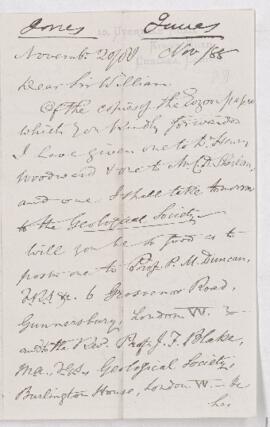 Jones James
November 20/88 Nov/88
Dear Sir William,
Of the copies of the Eozoon paper
which you kindly forwarded
I have given one to Dr. Henry
Woodward & one to Mr. C. D.
and one I shall take tomorrow
to the Geological Society.
Will you be so good as to
post one to Prof. P. M. Duncan,
&c. 6 Grosvenor Road,
Gunnersbury, London W. &
and to the Rev. Prof. J. F. Blake,
M.A. &c, Geological Society,
Burlington House, London W. — He